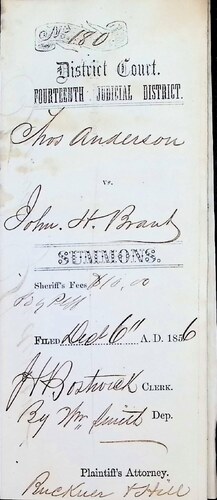 No. 180
District Court.
FOURTEENTH JUDICIAL DISTRICT.
Thos Anderson
vs.
John. H. Brant
SUMMONS.
Sheriff's Fees $10.00
Pd by Plff
FILED Dec 6th A. D. 1856
J H Bostwick CLERK.
By Wm Smith Dep.
Plaintiff's Attorney.
Buckner & Hill